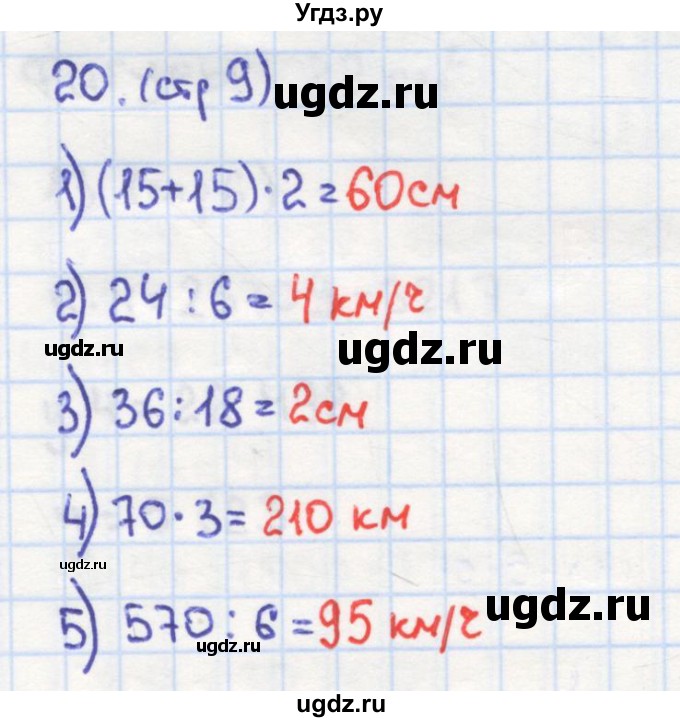 Угдз.ру
20. (стр 9)
ugdz.ru
1) (15+15)·2=60см
2) 24:6=4 км/ч
ugdz.ru
ugdz.ru
3) 36:18=2см
4) 70·3=210 км
ugdz.ru
5) 570:6=95 км/ч
ugdz.ru
ugdz.ru